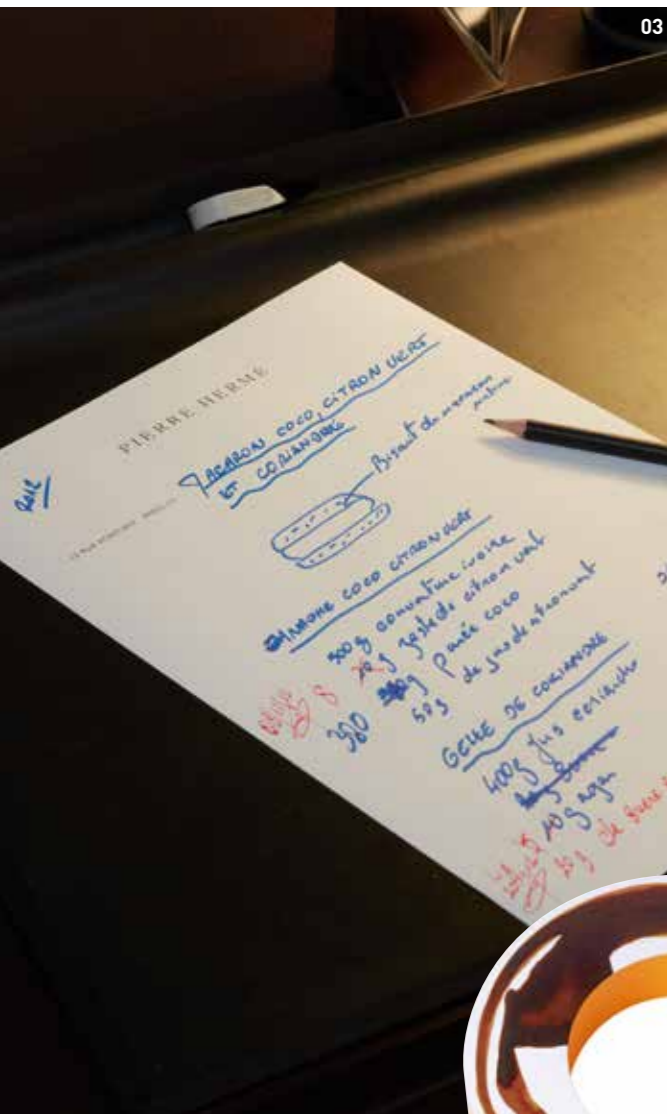 03
PIERRE HERMÉ
MACARON COCO, CITRON VERT
ET CORIANDRE
Biscuit du macaron
COCO CITRON VERT
500 g couverture ivoire
8 g zeste de citron vert
380 g purée coco
50 g de jus de citron vert
GELÉE DE CORIANDRE
400g jus coriandre
10 g agar
20 g de sucre